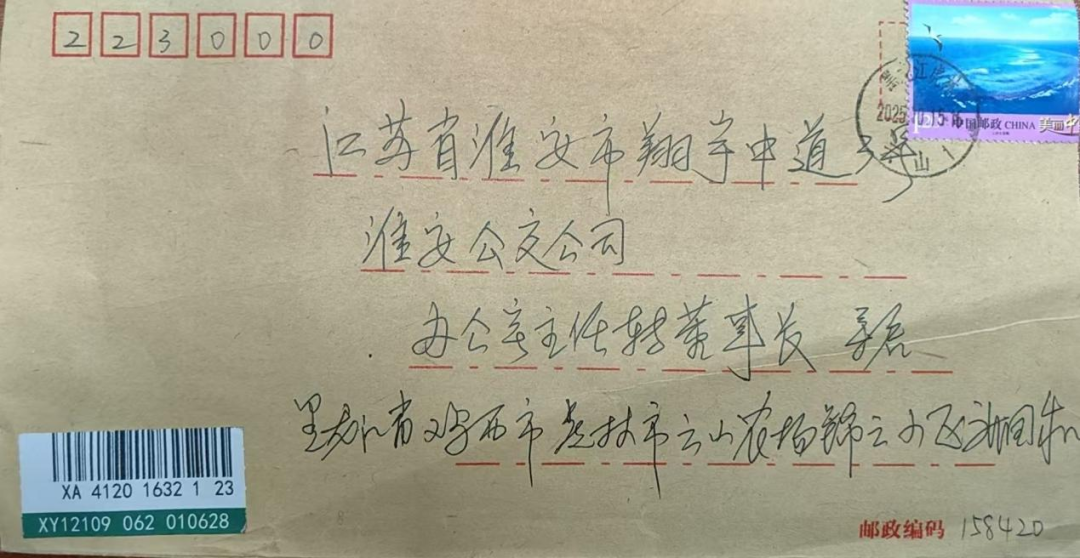 223000
中国邮政 CHINA 美丽中
2025
山1
江苏省淮安市翔宇中道3号
淮安公交公司
办公室主任转董事长 亲启
黑龙江省鸡西市虎林市云山农场锦云小区
XA 4120 1632 1 23
XY12109 062 010628
邮政编码 158420